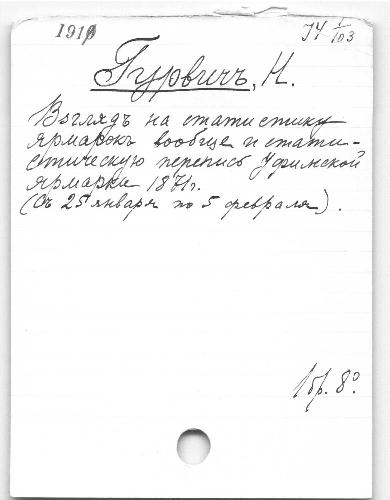 1919 J4 1/103
Гурвичъ, Н.
Взглядъ на статистику
ярмарокъ вообще и стати-
стическую перепись Уфимской
ярмарки 1871 г.
(Съ 25 января по 5 февраля).
1 бр. 8º.